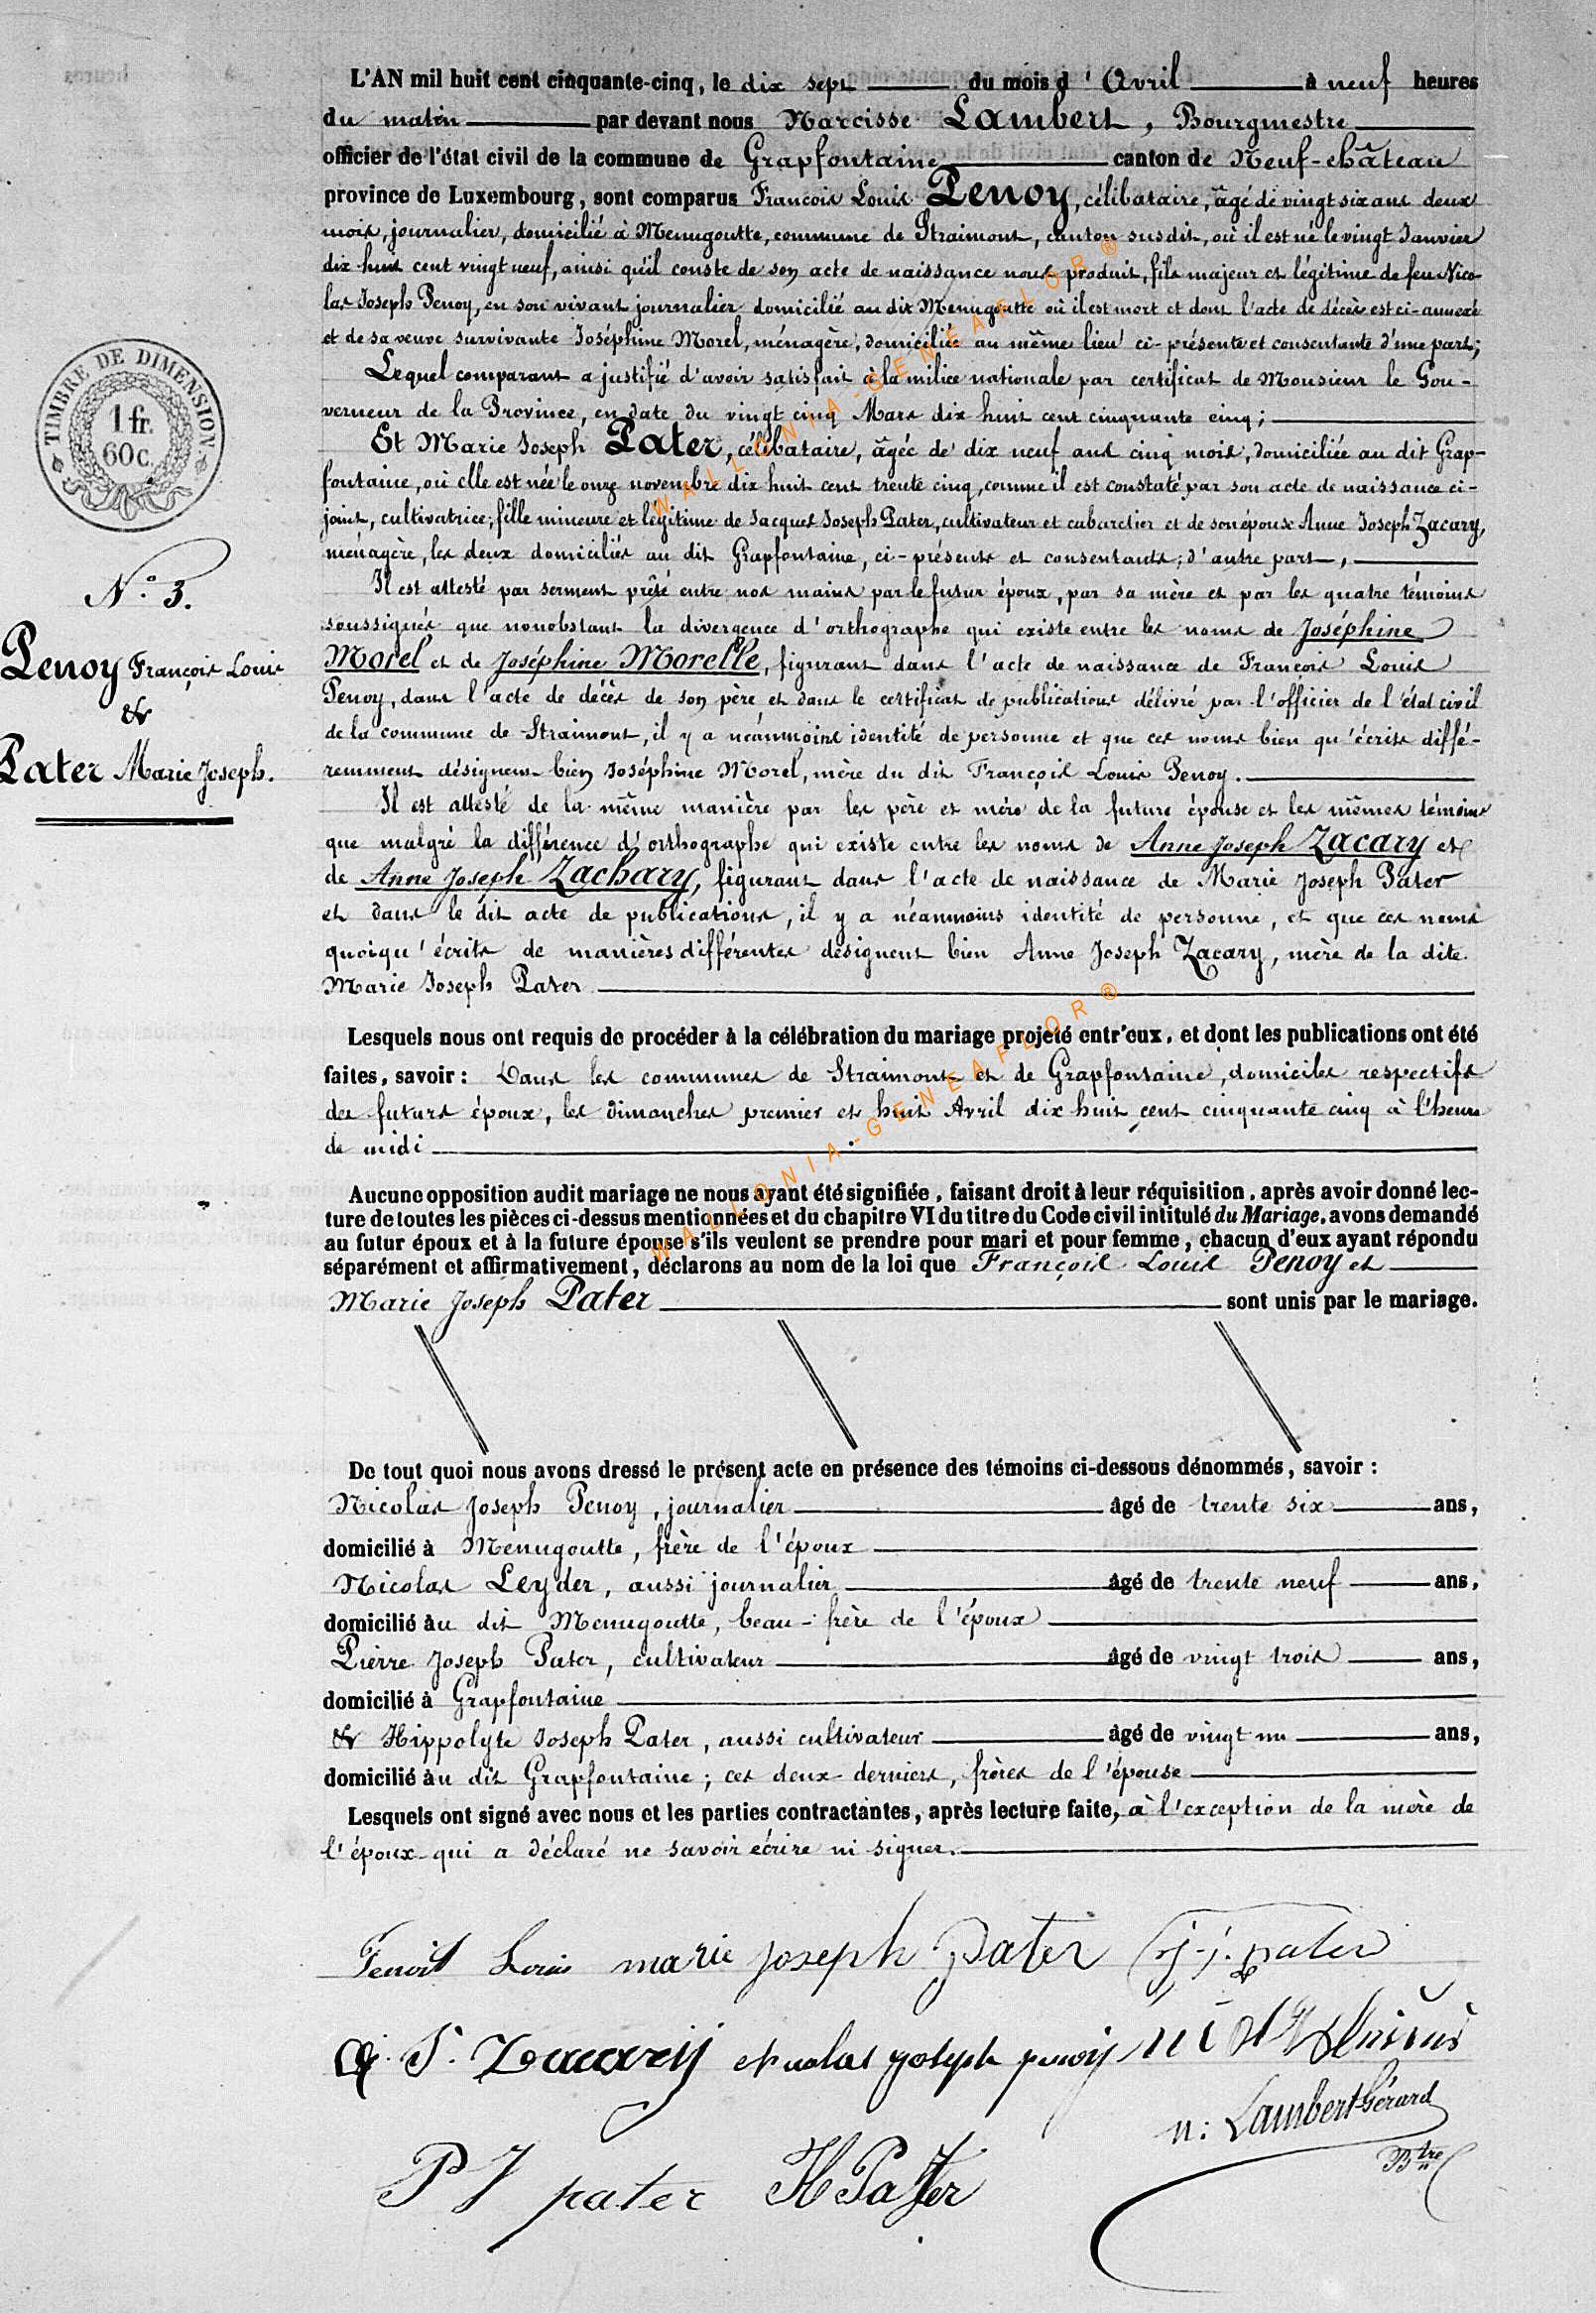 L'AN mil huit cent cinquante-cinq, le dix sept du mois d'Avril à neuf heures
du matin par devant nous Narcisse Lambert, Bourgmestre
officier de l'état civil de la commune de Grapfontaine canton de Neuf-château
province de Luxembourg, sont comparus François Louis Penoy, célibataire, âgé de vingt six ans deux
mois, journalier, domicilié à Menugoutte, commune de Straimont, canton susdit, où il est né le vingt Janvier
dix huit cent vingt neuf, ainsi qu'il conste de son acte de naissance nous produit, fils majeur et légitime de feu Nico-
las Joseph Penoy, en son vivant journalier domicilié au dit Menugoutte où il est mort et dont l'acte de décès est ci-annexé
et de sa veuve survivante Joséphine Morel, ménagère, domiciliée au même lieu ci-présente et consentante d'une part;
Lequel comparant a justifié d'avoir satisfait à la milice nationale par certificat de Monsieur le Gou-
verneur de la Province, en date du vingt cinq Mars dix huit cent cinquante cinq;
Et Marie Joseph Pater, célibataire, âgée de dix neuf ans cinq mois, domiciliée au dit Grap-
fontaine, où elle est née le onze novembre dix huit cent trente cinq, comme il est constaté par son acte de naissance ci-
joint, cultivatrice, fille mineure et légitime de Jacques Joseph Pater, cultivateur et cabaretier et de son épouse Anne Joseph Zacary,
ménagère, les deux domiciliés au dit Grapfontaine, ci-présents et consentants; d'autre part,
TIMBRE DE DIMENSION
1 fr.
60 c.
N.° 3.
Penoy François Louis
&
Pater Marie Joseph.
Il est attesté par serment prêté entre nos mains par le futur époux, par sa mère et par les quatre témoins
soussignés que nonobstant la divergence d'orthographe qui existe entre les noms de Joséphine
Morel et de Joséphine Morelle, figurant dans l'acte de naissance de François Louis
Penoy, dans l'acte de décès de son père et dans le certificat de publications délivré par l'officier de l'état civil
de la commune de Straimont, il y a néanmoins identité de personne et que ces noms bien qu'écrits diffé-
remment désignent bien Joséphine Morel, mère du dit François Louis Penoy.
Il est attesté de la même manière par les père et mère de la future épouse et les mêmes témoins
que malgré la différence d'orthographe qui existe entre les noms de Anne Joseph Zacary et
de Anne Joseph Zachary, figurant dans l'acte de naissance de Marie Joseph Pater
et dans le dit acte de publications, il y a néanmoins identité de personne, et que ces noms
quoiqu'écrits de manières différentes désignent bien Anne Joseph Zacary, mère de la dite
Marie Joseph Pater
Lesquels nous ont requis de procéder à la célébration du mariage projeté entr'eux, et dont les publications ont été
faites, savoir: Dans les communes de Straimont et de Grapfontaine, domiciles respectifs
des futurs époux, les dimanches premier et huit Avril dix huit cent cinquante cinq à l'heure
de midi
Aucune opposition audit mariage ne nous ayant été signifiée, faisant droit à leur réquisition, après avoir donné lec-
ture de toutes les pièces ci-dessus mentionnées et du chapitre VI du titre du Code civil intitulé du Mariage, avons demandé
au futur époux et à la future épouse s'ils veulent se prendre pour mari et pour femme, chacun d'eux ayant répondu
séparément et affirmativement, déclarons au nom de la loi que François Louis Penoy et
Marie Joseph Pater sont unis par le mariage.
De tout quoi nous avons dressé le présent acte en présence des témoins ci-dessous dénommés, savoir:
Nicolas Joseph Penoy, journalier âgé de trente six ans,
domicilié à Menugoutte, frère de l'époux
Nicolas Leyder, aussi journalier âgé de trente neuf ans,
domicilié au dit Menugoutte, beau-frère de l'époux
Pierre Joseph Pater, cultivateur âgé de vingt trois ans,
domicilié à Grapfontaine
& Hippolyte Joseph Pater, aussi cultivateur âgé de vingt un ans,
domicilié au dit Grapfontaine; ces deux derniers, frères de l'épouse
Lesquels ont signé avec nous et les parties contractantes, après lecture faite, à l'exception de la mère de
l'époux qui a déclaré ne savoir écrire ni signer.
Penoit Louis marie joseph Pater j. j. pater
a. J. Zacarij nicolas joseph penoij
n: Lambert Gérard
Btre
P J pater H Pater
WALLONIA-GENEAFLOR ®
WALLONIA-GENEAFLOR ®